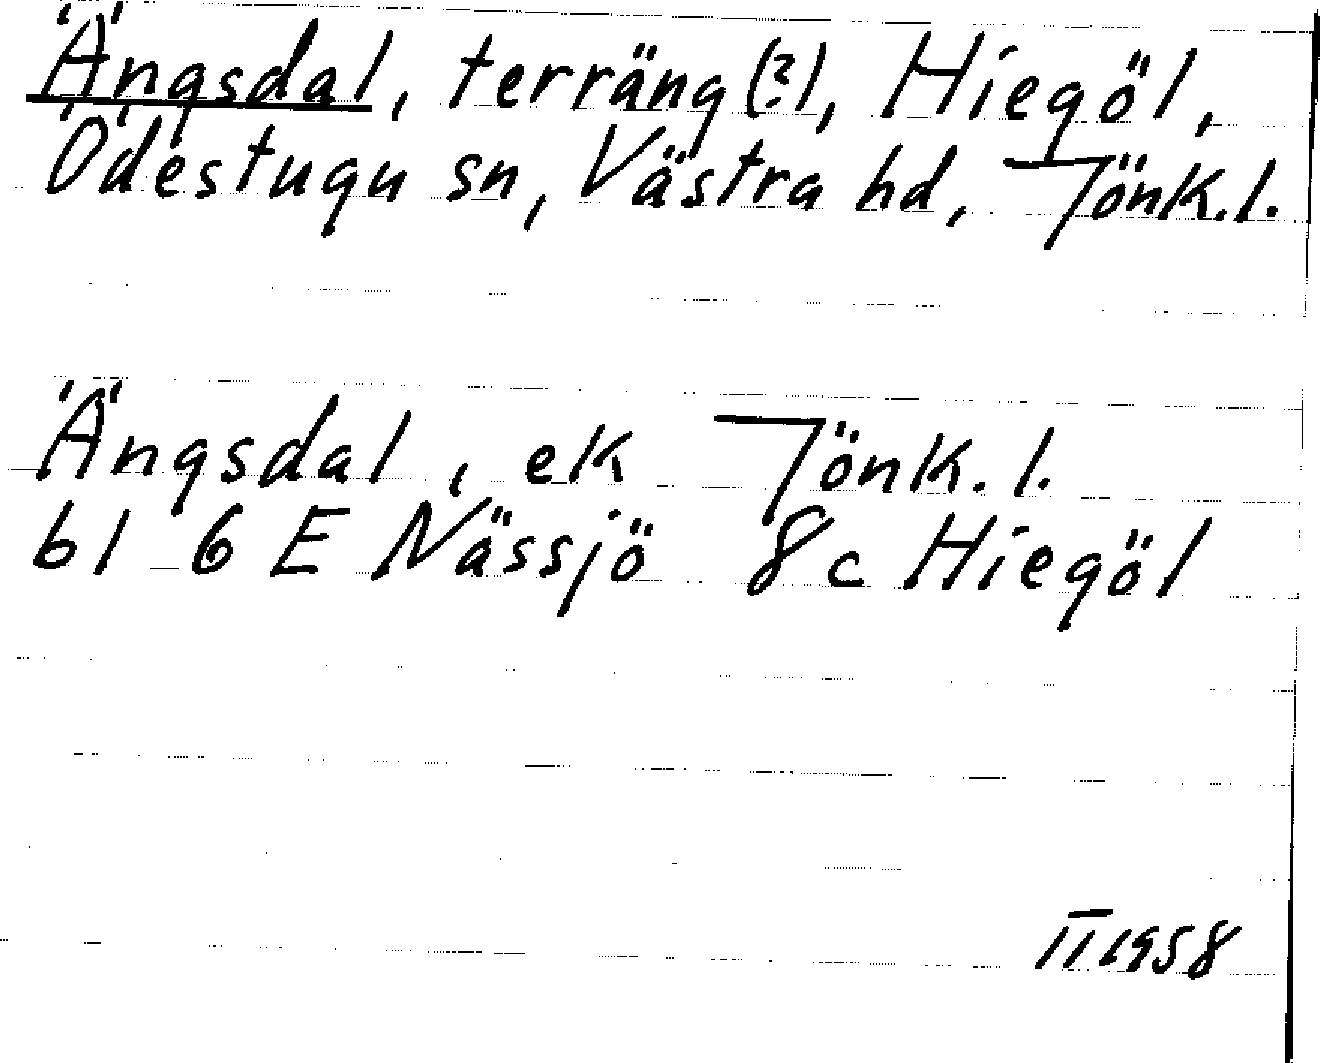 Ängsdal, terräng(?), Hiegöl,
Ödestugu sn, Västra hd, Jönk.l.
Ängsdal, ek Jönk.l.
bl 6 E Nässjö 8c Hiegöl
II 1958